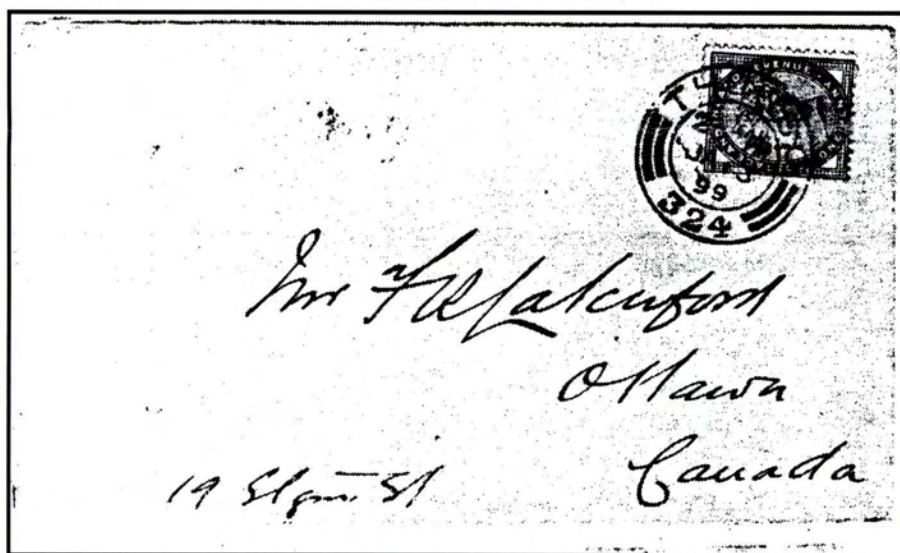 99
324
Mr F R Latchford
Ottawa
Canada
19 Elgin St